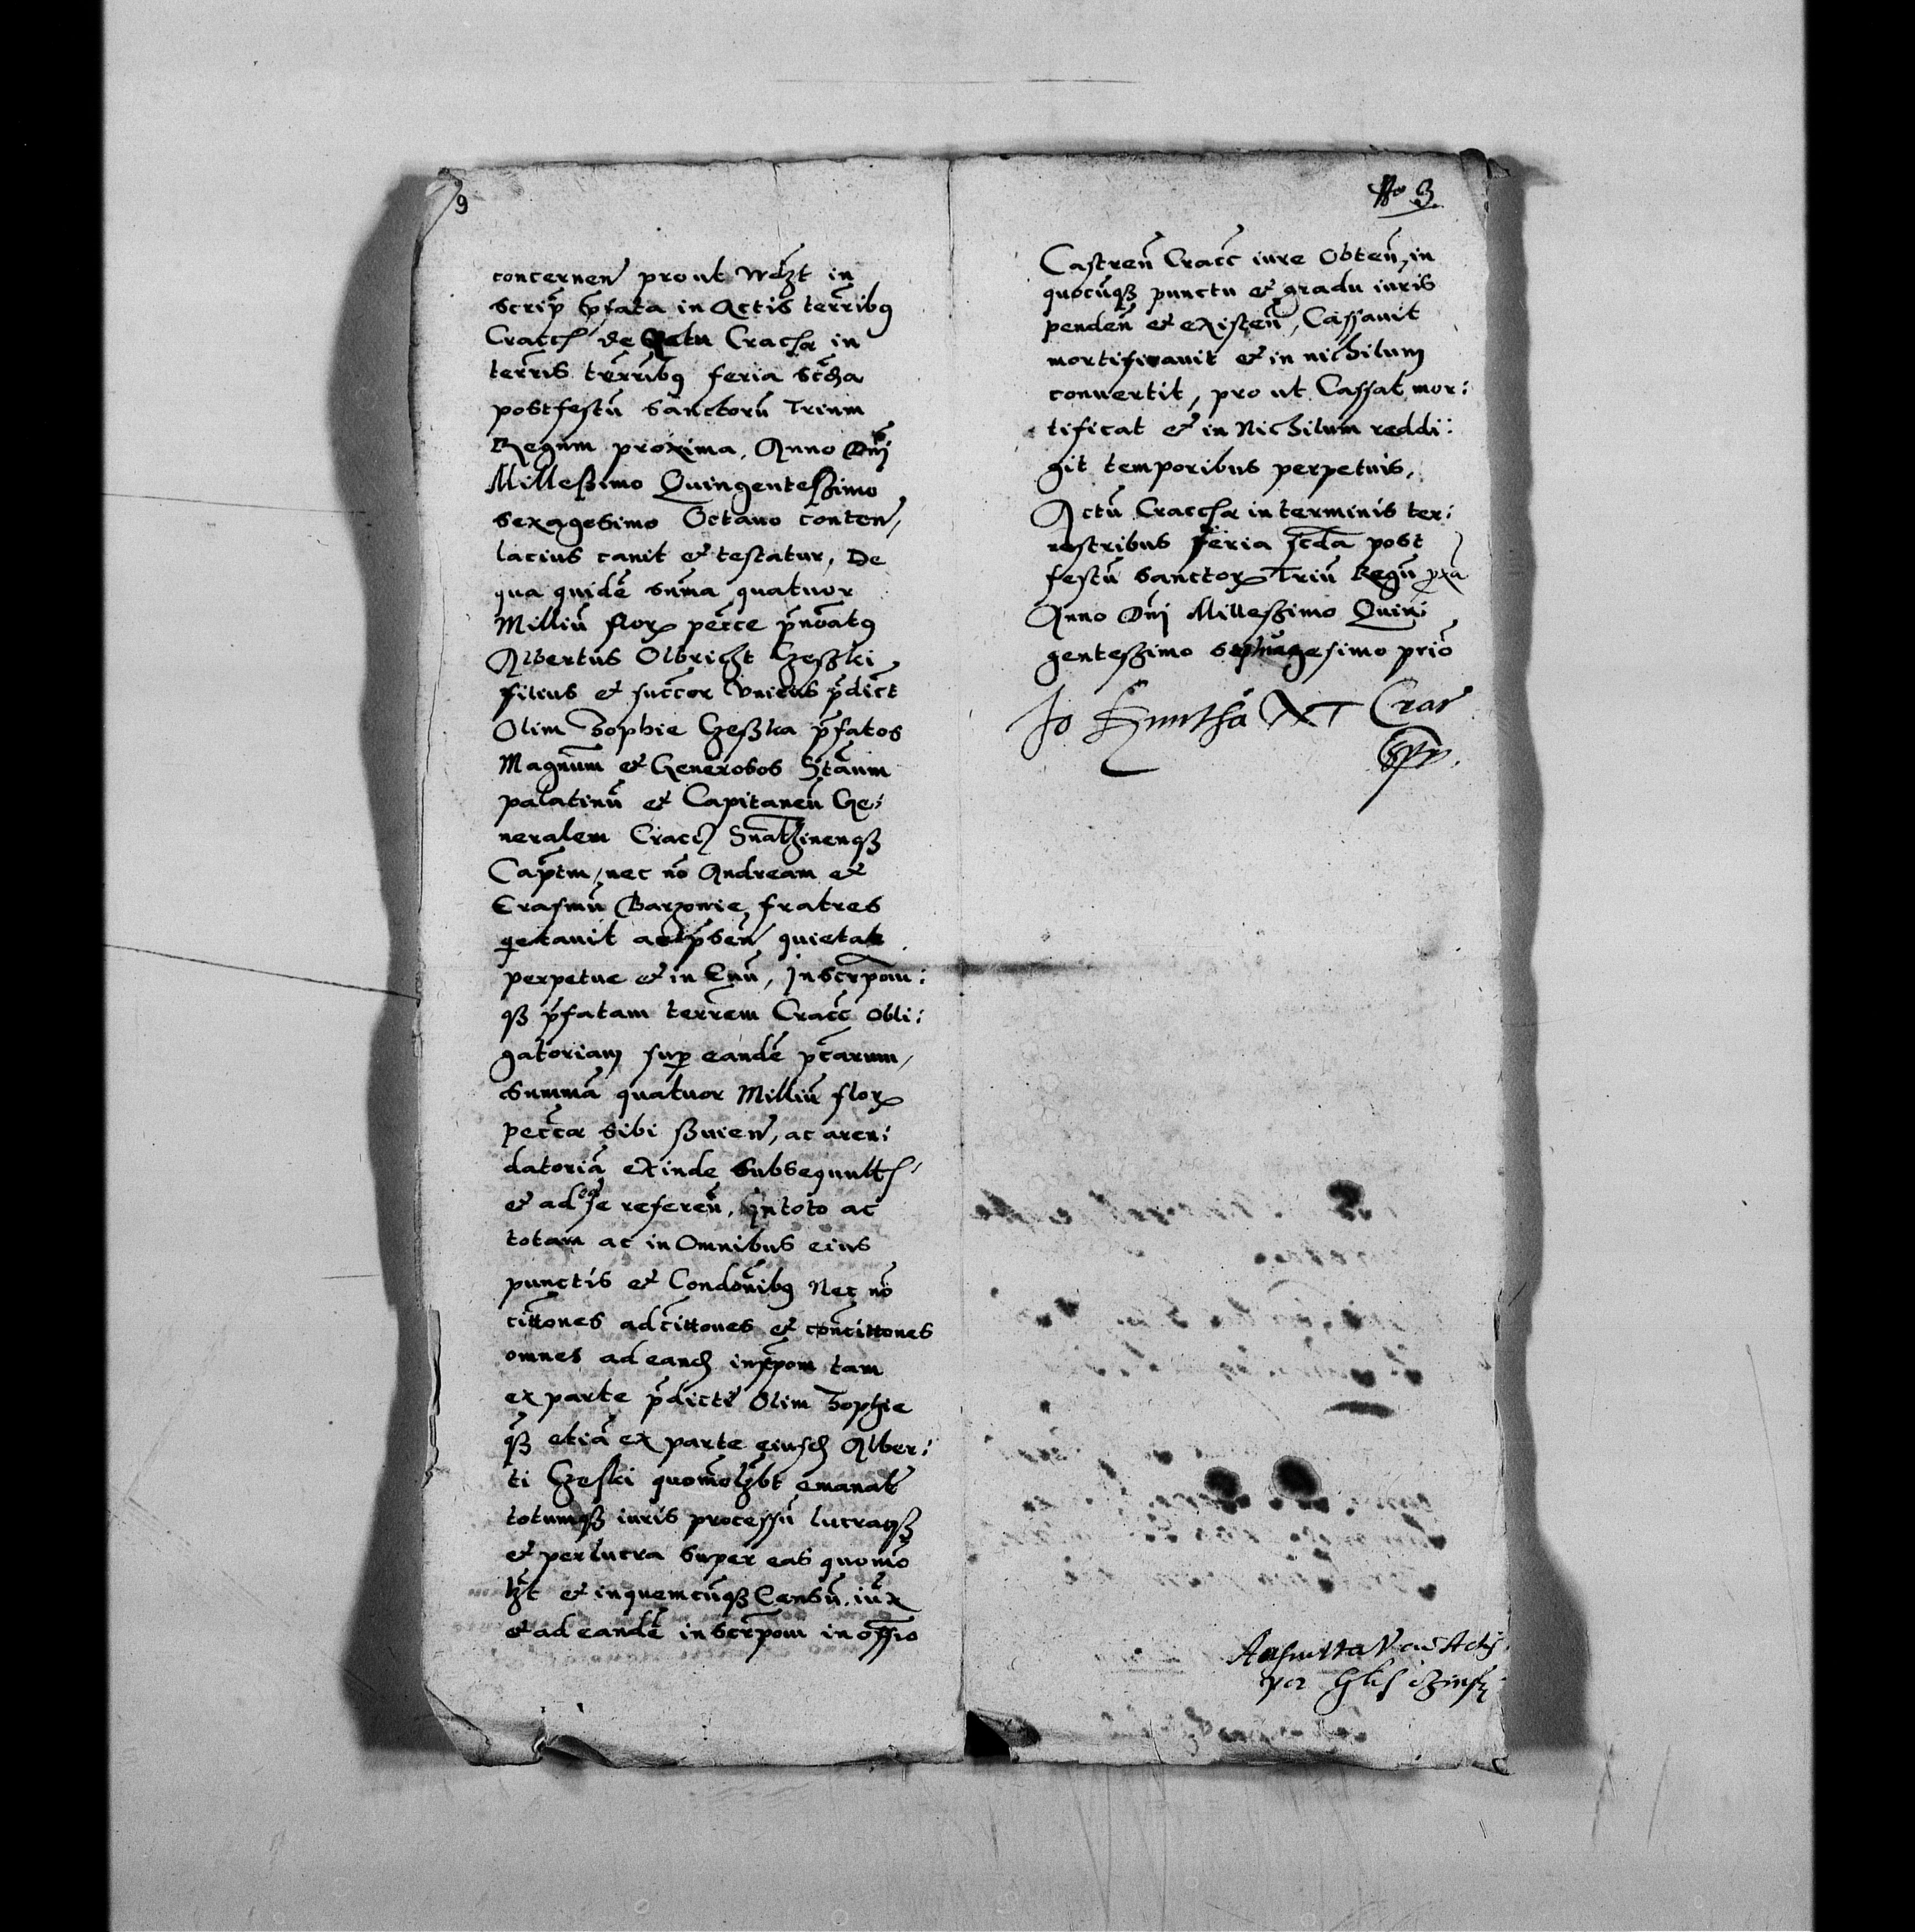 9
concernen̄ pro ut in
scrip̄ p̄fata in Actis terr̄ibꝯ
Cracc̄ de Actu Cracᷓ in
terr̄is terr̄ibꝯ feria scd̄a
post festū Sanctorū Trium
Regum proxima, Anno Dn̄j
Milleßimo Quingenteßimo
Sexagesimo Octavo conten̄,
lacius canit et testatur, De
qua quidē sum̄a quatuor
Milliū florꝝ pecc̄e p̄no͞atꝯ
Albertus Olbricht Czeßki
filius et succ̄or unicus p̄dict̄
Olim Zophie Czeßka p̄fatos
Magn̄um et Generosos Stan̄um
palatinū et Capitaneū Ge:
neralem Cracc̄
Cap̄tm, nec nō Andream et
Erasmū Barzowie fratres
qietavit ac p̄sen̄ quietat
perpetue et in Evū, Inscrp̄om:
qꝫ p̄fatam terr̄em Cracc̄ Obli:
gatoriam suꝑ eandē p̄tarum,
Summā quatuor Milliū florꝝ
pecc̄a Sibi ac aren:
datoriā exinde subsequut̄
et ad se referen̄, In toto ac
totam ac in Omnibus eius
punctis et Condōnibꝯ Nec nō
citt̄ones adcitt̄ones et concitt̄ones
omnes ad eand̄ inscr̄pom tam
ex parte p̄dicte Olim Zophie
qꝫ etiā ex parte eiusd̄ Alber:
ti Czeski quomol̄bt emanat̄
totumqꝫ iuris processū lucraqꝫ
et perlucra super eas quomō
lb̄t et in quemcūqꝫ Censū, iux̄
et ad eandē inscrp̄om in off̄io
No 3.
Castren̄ Cracc̄ iure Obten̄, in
quocūqꝫ punctu et gradu iuris
penden̄ et existen̄, Cassavit
mortificavit et in nichilum
convertit, pro ut Cassat mor:
tificat et in Nichilum reddi:
git temporibus perpetuis,
Actū Cracᷓ in terminis ter:
restribus feria scd̄a post
festū Sanctorꝝ Triū Regū p̄xa
Anno Dn̄j Milleßimo Quin:
genteßimo septuagesimo prīo